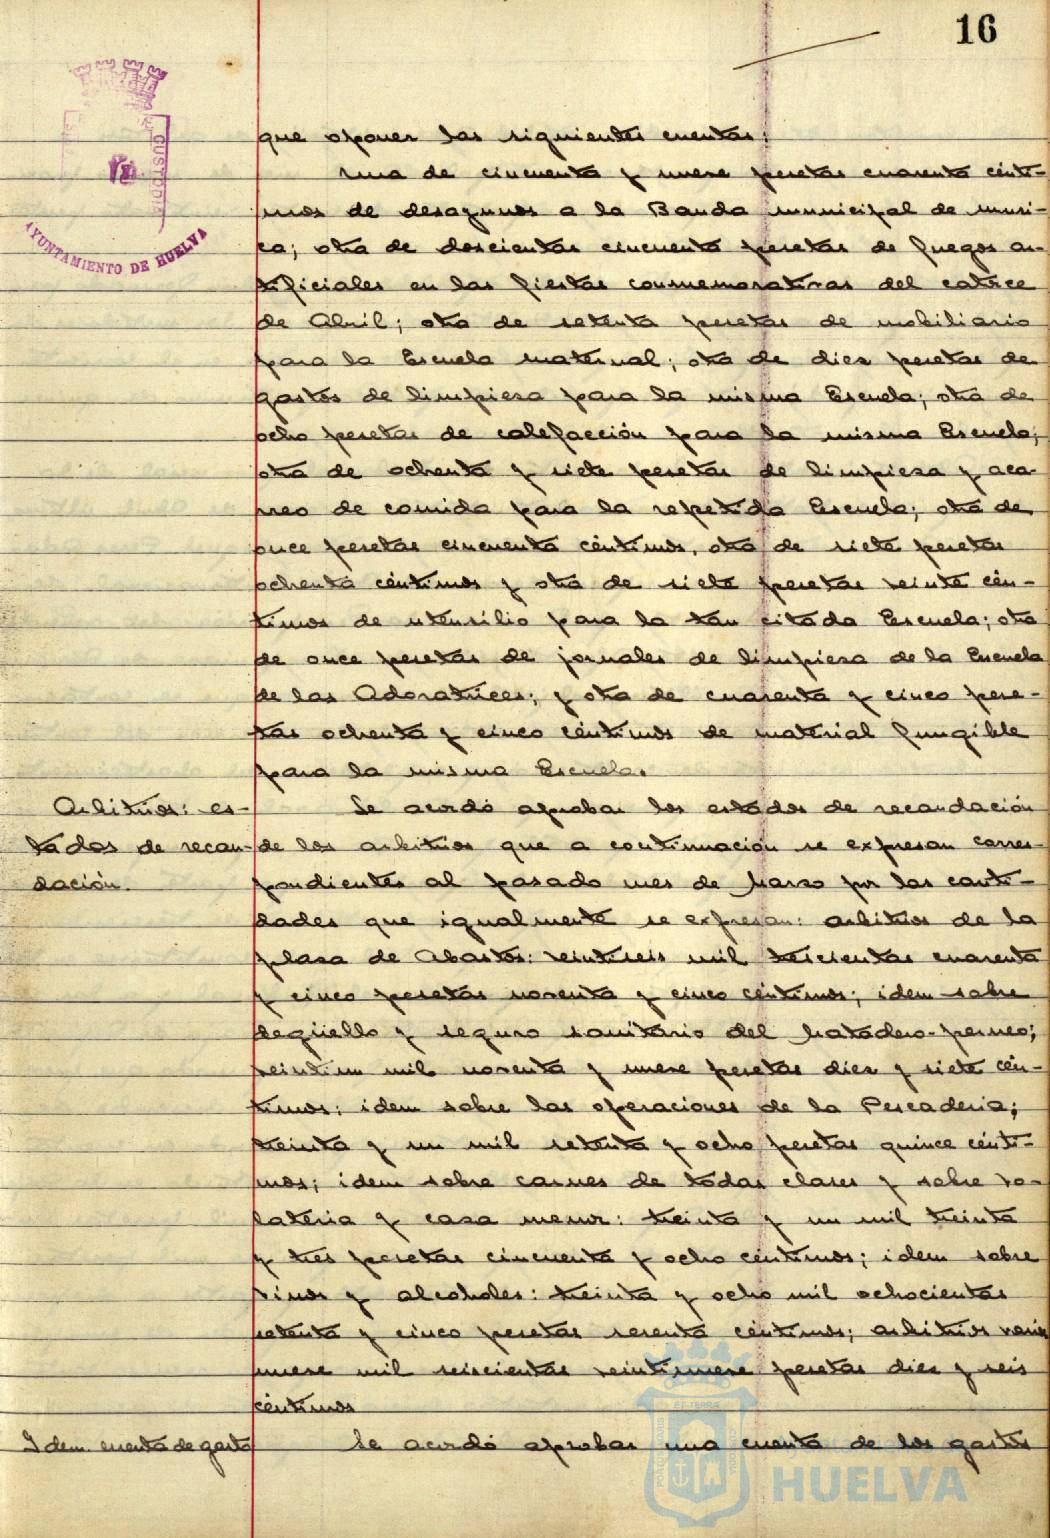 16
CUSTODIA
AYUNTAMIENTO DE HUELVA
que oponer las siguientes cuentas:
una de cincuenta y nueve pesetas cuarenta cénti-
mos de desayunos a la Banda municipal de músi-
ca; otra de doscientas cincuenta pesetas de fuegos ar-
tificiales en las fiestas conmemorativas del catorce
de Abril; otra de setenta pesetas de mobiliario
para la Escuela maternal; otra de diez pesetas de
gastos de limpieza para la misma Escuela; otra de
ocho pesetas de calefacción para la misma Escuela;
otra de ochenta y siete pesetas de limpieza y aca-
rreo de comida para la repetida Escuela; otra de
once pesetas cincuenta céntimos, otra de siete pesetas
ochenta céntimos y otra de siete pesetas veinte cén-
timos de utensilio para la tan citada Escuela; otra
de once pesetas de jornales de limpieza de la Escuela
de las Adoratrices; y otra de cuarenta y cinco pese-
tas ochenta y cinco céntimos de material fungible
para la misma Escuela.
Arbitrios: es-
tados de recau-
dación.
Se acordó aprobar los estados de recaudación
de los arbitrios que a continuación se expresan corres-
pondientes al pasado mes de Marzo por las canti-
dades que igualmente se expresan: arbitrios de la
plaza de Abastos: veintiseis mil trescientas cuarenta
y cinco pesetas noventa y cinco céntimos; idem sobre
degüello y seguro sanitario del Matadero-perneo;
veintiun mil noventa y nueve pesetas diez y siete cén-
timos; idem sobre las operaciones de la Pescadería;
treinta y un mil setenta y ocho pesetas quince cénti-
mos; idem sobre carnes de todas clases y sobre vo-
latería y caza menor: treinta y un mil treinta
y tres pesetas cincuenta y ocho céntimos; idem sobre
vinos y alcoholes: treinta y ocho mil ochocientas
setenta y cinco pesetas sesenta céntimos; arbitrios varios
nueve mil seiscientas veintinueve pesetas diez y seis
céntimos
Idem. cuenta de gastos
Se acordó aprobar una cuenta de los gastos
HUELVA